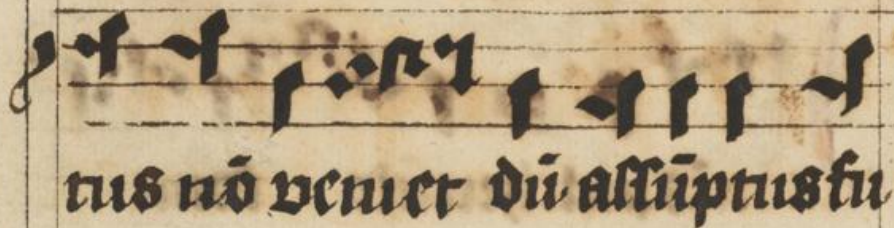 tus nō veniet dū assūptus fu